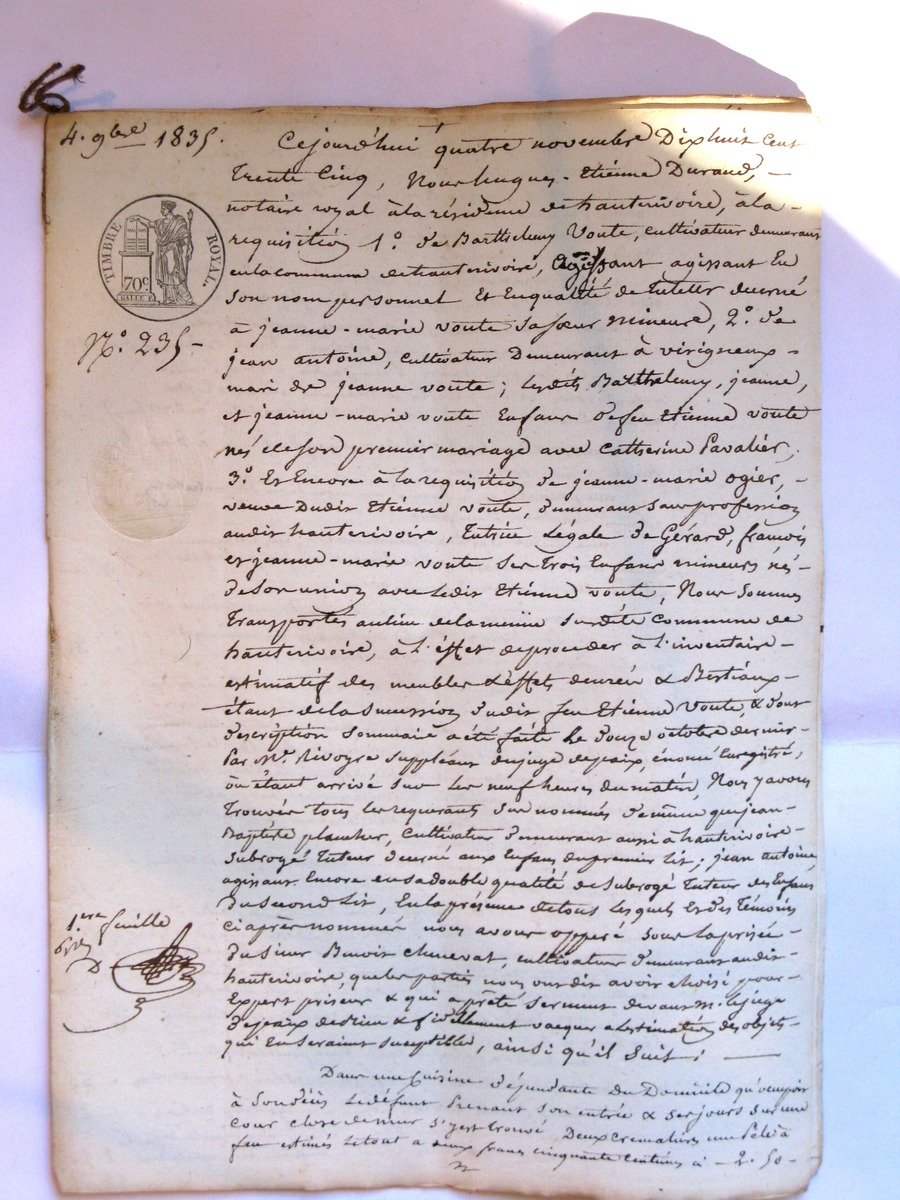 4. 9bre 1835.
TIMBRE ROYAL
70c
N.o 235 -
Cejourd'hui quatre novembre Dixhuit Cent
Trente Cinq, Nous hugues - Etiénne Durand, -
notaire royal à la résidence de hauterivoire, à la -
requisition 1.o de Barthelemy Voute, cultivateur demeurant
en la commune de hauterivoire, agissant En
son nom personnel Et Enqualité de Tuteur decerné
à jeanne - marie voute sa soeur mineure, 2.o de
jean antoine, cultivateur Demeurant à virigneux -
mari de jeanne voute ; lesdits Barthelemy, jeanne,
et jeanne - marie voute Enfans de feu Etienne voute
nés de son premier mariage avec Catherine Pavalier,
3.o Et Encore à la requisition de jeanne - marie ogier, -
veuve Dudit Etiénne voute, demeurant sans profession
audit hauterivoire, Tutrice Légale de Gérard, françois
et jeanne - marie voute ses trois Enfans mineurs nés -
de son union avec ledit Etiénne voute, Nous Sommes
Transportés au lieu de la susdite Commune de
hauterivoire, à l'effet de proceder à l'inventaire -
estimatif des meubles & Effets denrées & Bestiaux -
étant de la succession dudit feu Etiénne Voute, & dont
description Sommaire a été faite le douze octobre dernier
Par Mr. Rivoyre suppléant du juge depaix, Enregistré,
où étant arrivé sur les neuf heures du matin, Nous y avons
Trouvés tous les requerants sus nommés de même que jean -
Baptiste plancher, Cultivateur demeurant aussi à hauterivoire -
subrogé Tuteur decerné aux Enfans du premier lit ; jean antoine,
agissant Encore en sa double qualité de Subrogé Tuteur des Enfans
Du second Lit, En la présence de tous lesquels Et des Témoins
Ci après nommés nous avons opperé sous la prisée -
Du sieur Benoit chenevat, cultivateur demeurant audit -
hauterivoire, que les parties nous ont dit avoir choisi pour -
Expert priseur & qui a prêté serment devant m. le juge
depaix de bien & fidellement vaquer a l'estimation des objets -
qui En seraient susceptibles, ainsi qu'il suit ;
1.ere feuille
Dans une Cuisine dépendante du Domicile qu'occupoit
à son décès le défunt Prenant son entrée & ses jours sur une
cour close de mur s'y est trouvé Deux Cremaliers une Pele à
feu estimés le tout a deux francs cinquante centimes ci - 2. 50 -